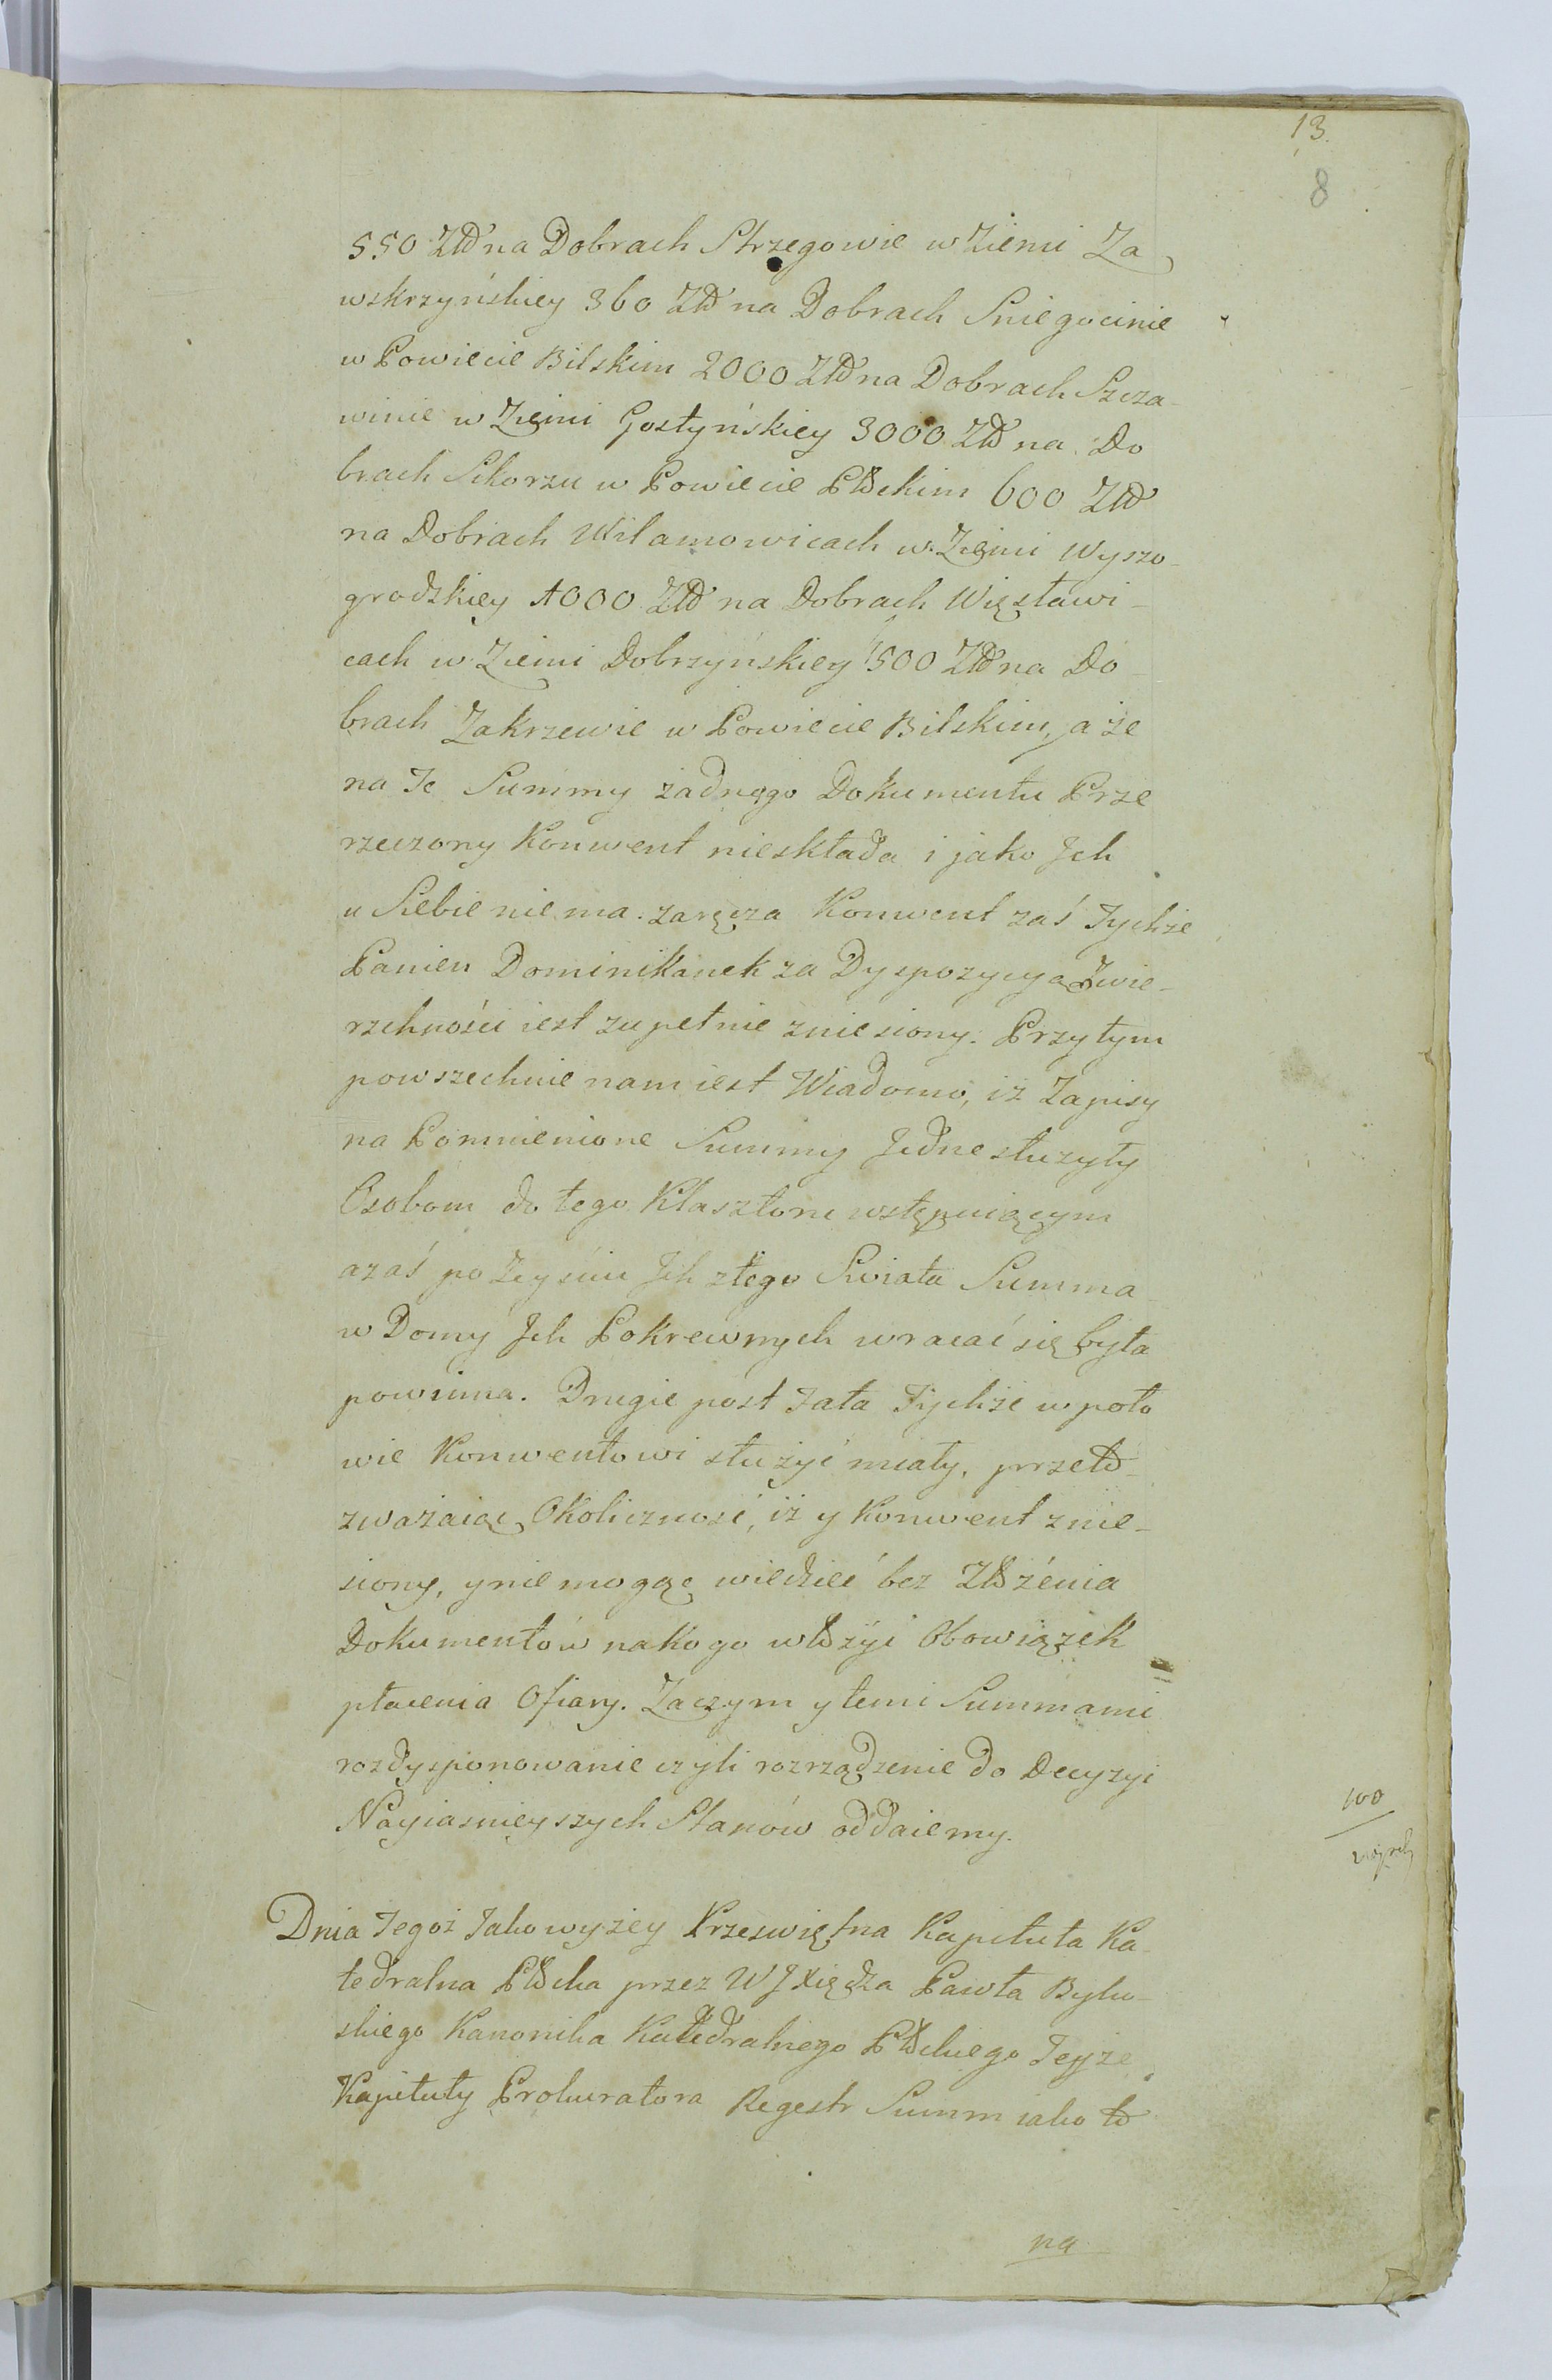 13.
8
550 Złł na Dobrach Strzegowie w Ziemi Za
wskrzyńskiey 360 Złł na Dobrach Sniegocinie
w Powiecie Bilskim 2000 Złł na Dobrach Szcza-
winie w Ziemi Gostyńskiey 3000 Złł na Do
brach Sikorzu w Powiecie Płockim 600 Złł
na Dobrach Wilamowicach w Ziemi Wyszo-
grodzkiey 1000 Złł na Dobrach Więsławi-
cach w Ziemi Dobrzyńskiey 1500 Złł na Do-
brach Zakrzewie w Powiecie Bilskim, a że
na Te Summy żadnego Dokumentu Prze
rzeczony Konwent nieskłada i jako Jch
u Siebie niema. zaręcza Konwent zaś Tychże
Panien Dominikanek za Dyspozycyą Zwie-
rzchności iest zupełnie zniesiony. Przytym
powszechnie nam iest Wiadomo, iż Zapisy
na Pomnienione Summy Jedne służyły
Osobom do tego Klasztoru wstępuiącym
azaś po Zeyściu Jch z tego Swiata Summa
w Domy Jch Pokrewnych wracać się była
powinna. Drugie post Fata Tychże w poło
wie Konwentowi służyć miały, przeto
zważaiąc Okoliczność, iż y Konwent znie-
siony, y nie mogąc wiedzieć bez Złożenia
Dokumentów na kogo włożyć Obowiązek
płacenia Ofiary. Zaczym y temi Summami
rozdysponowanie czyli rozrządzenie do Decyzyi
Nayiasnieyszych Stanów oddaiemy.
100
Dnia Tegoż Jakowyżey Przeswiętna Kapituła Ka-
tedralna Płocka przez WJXiędza Pawła Bylu-
skiego Kanonika Katedralnego Płockiego Teyże
Kapituły Prokuratora Regestr Summ iako to
na